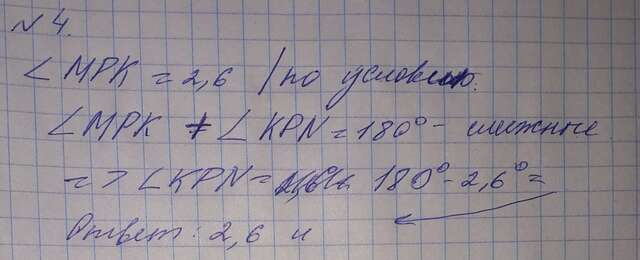 № 4.
∠ MPK = 2,6 / по условию.
∠ MPK + ∠ KPN = 180° - смежные
=> ∠ KPN = 180° - 2,6° =
Ответ: 2,6 и